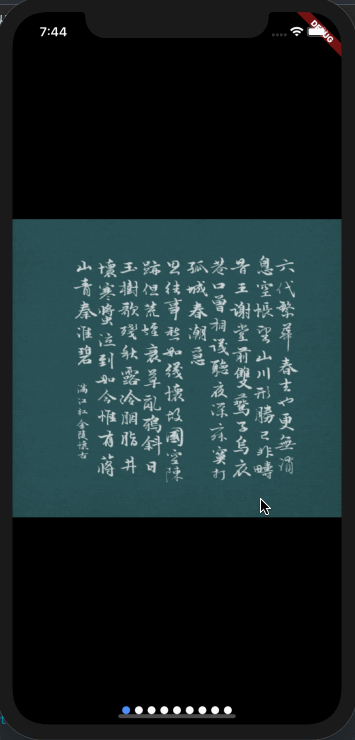 7:44
DEBUG
六代繁華春去也更無消
息空悵望山川形勝已非疇
昔王謝堂前雙燕子烏衣
巷口曾相識聽夜深寂寞打
孤城春潮急
思往事愁如織懷故國空陳
跡但荒煙衰草亂鴉斜日
玉樹歌殘秋露冷胭脂井
壞寒螿泣到如今惟有蔣
山青秦淮碧 滿江紅金陵懷古